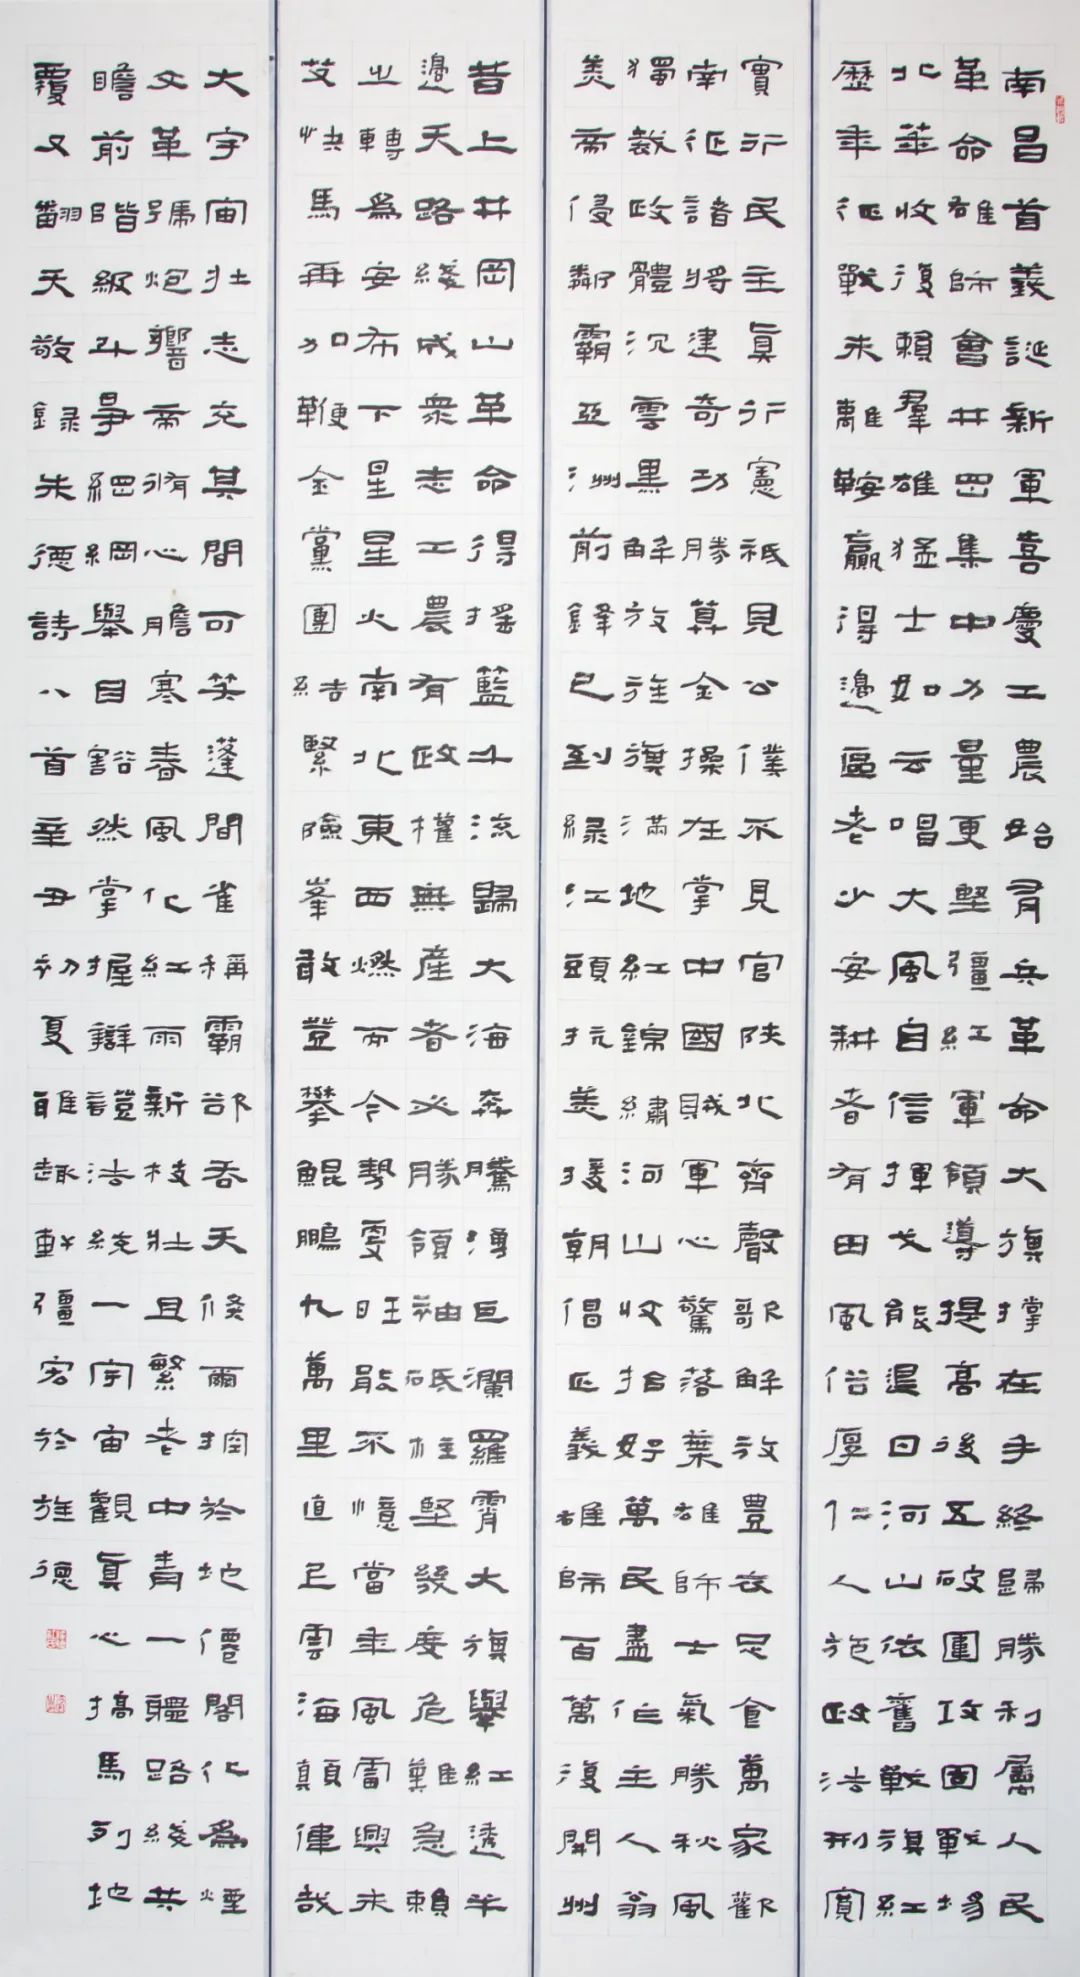 南昌首義誕新軍喜慶工農始有兵革命大旗撑在手終歸勝利屬人民
革命雄師會井岡集中力量更堅彊紅軍領導提高後五破圍攻固戰場
北華收復賴羣雄猛士如云唱大風自信揮戈能退日河山依舊戰旗紅
歷年征戰未離鞍贏得邊區老少安耕者有田風俗厚仁人施政法刑寬
實行民主真行憲祇見公僕不見官陝北齊聲歌解放豐衣足食萬家歡
南征諸將建奇功勝算全操在掌中國賊軍心驚落葉雄師士氣勝秋風
獨裁政體沉雲黑解放旌旗滿地紅錦繡河山收拾好萬民盡作主人翁
美帝侵鄰霸亞洲前鋒已到綠江頭抗美援朝倡正義雄師百萬復開州
昔上井岡山革命得摇籃千流歸大海奔騰湧巨瀾羅霄大旗舉紅透半
邊天路綫成衆志工農有政權無産者必勝領袖砥柱堅幾度危難急賴
之轉爲安布下星星火南北東西燃而今勢更旺能不憶當年風雷興未
艾快馬再加鞭全黨團結緊險峯敢登攀鯤鵬九萬里直上雲海顛偉哉
大宇宙壯志充其間可笑蓬間雀稱霸欲吞天倏爾控於地僊閣化爲煙
文革號炮響帝脩心膽寒春風化紅雨新枝壯且繁老中青一體路綫共
瞻前階級斗争綱綱舉目豁然掌握辯證法統一宇宙觀真心搞馬列地
覆又翻天敬録朱德詩八首辛丑初夏雅趣軒彊宏於旌德